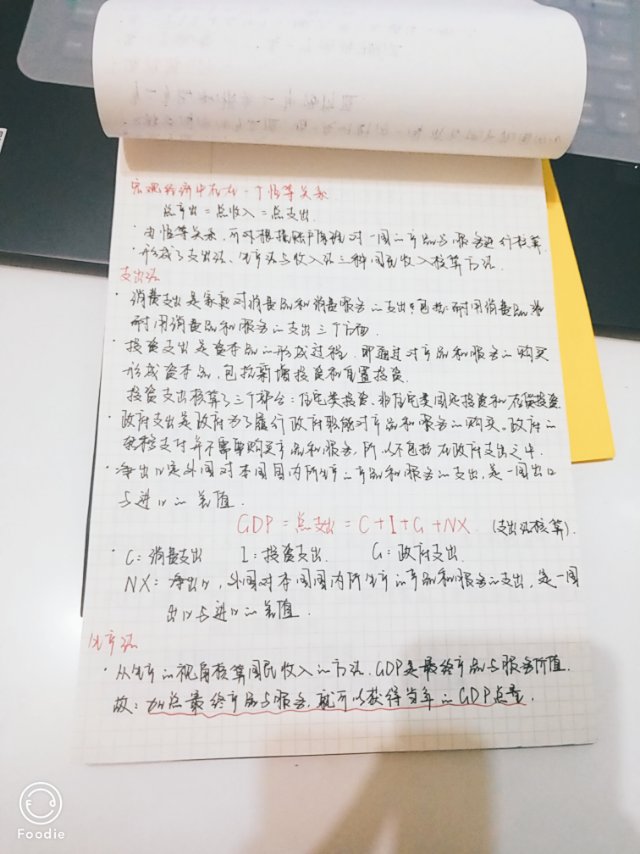 宏观经济中存在一个恒等关系
总产出=总收入=总支出.
·由恒等关系,可对根据账户原理对一国的产品与服务进行核算.
·形成了支出法、生产法与收入法三种国民收入核算方法.
支出法
·消费支出是家庭对消费品和消费服务的支出,包括:耐用消费品、非
耐用消费品和服务的支出三个方面.
·投资支出是资本品的形成过程,即通过对产品和服务的购买
形成资本品,包括新增投资和重置投资.
投资支出核算了三个部分:住宅类投资、非住宅类固定投资和存货投资.
·政府支出是政府为了履行政府职能对产品和服务的购买。政府的
转移支付并不需要购买产品和服务,所以不包括在政府支出之中.
·净出口是外国对本国国内所生产的产品和服务的支出,是一国出口
与进口的差值.
GDP=总支出=C+I+G+NX.(支出法核算).
·C:消费支出 I:投资支出. G:政府支出.
NX:净出口,外国对本国国内所生产的产品和服务的支出,是一国
出口与进口的差值.
生产法
·从生产的视角核算国民收入的方法.GDP是最终产品与服务价值.
故:加总最终产品与服务,就可以获得当年的GDP总量.
Foodie